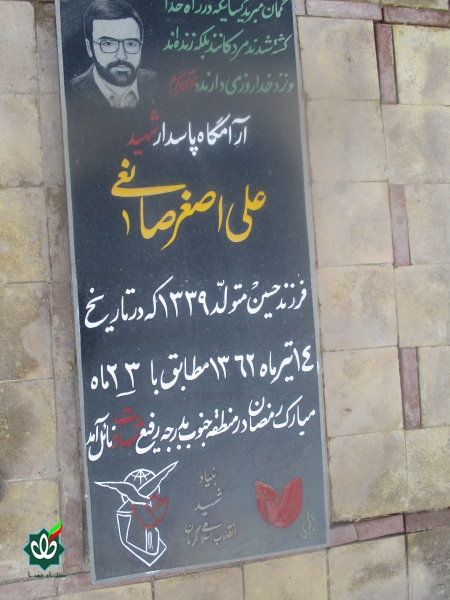 گمان مبرید کسانیکه در راه خدا
کشته شدند مردگانند بلکه زنده‌اند
و نزد خدا روزی دارند، قرآن کریم
آرامگاه پاسدار شهید
علی اصغر صانعی
فرزند حسین متولد ۱۳۳۹ که در تاریخ
۱۴ تیر ماه ۱۳۶۲ مطابق با ۲۳ ماه
مبارک رمضان در منطقه جنوب بدرجه رفیع شهادت نائل آمد
بنیاد
شهید
انقلاب اسلامی کرمان